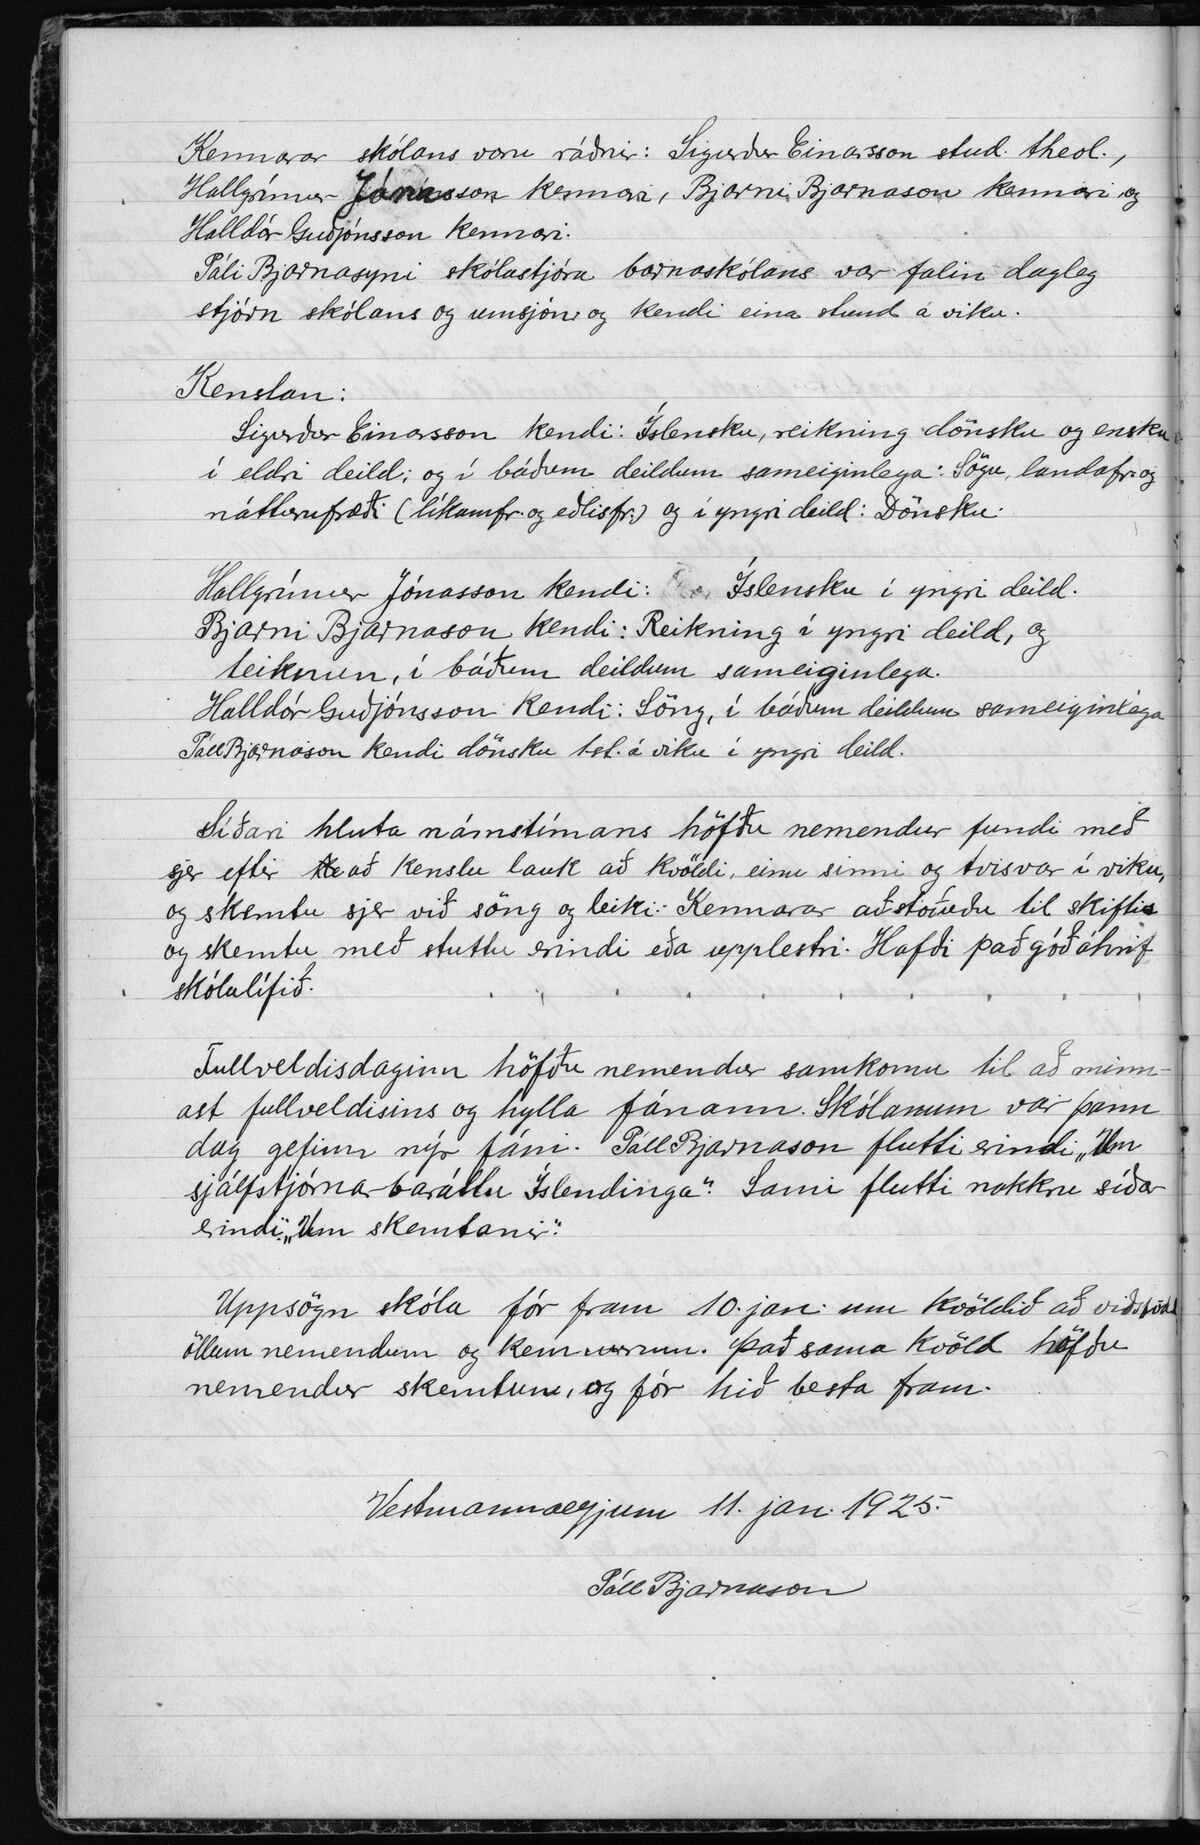 Kennarar skólans voru ráðnir: Sigurður Einarsson stud. theol.,
Hallgrímur Jónasson kennari, Bjarni Bjarnason kennari og
Halldór Guðjónsson kennari.
Páli Bjarnasyni skólastjóra barnaskólans var falin dagleg
stjórn skólans og umsjón og kendi eina stund á viku.
Kenslan:
Sigurður Einarsson kendi: Íslensku, reikning dönsku og ensku
í eldri deild; og í báðum deildum sameiginlega: Sögu, landafr. og
náttúrufræði (líkamfr. og eðlisfr.) og í yngri deild: Dönsku.
Hallgrímur Jónasson kendi: Íslensku í yngri deild.
Bjarni Bjarnason kendi: Reikning í yngri deild, og
teiknun, í báðum deildum sameiginlega.
Halldór Guðjónsson kendi: Söng, í báðum deildum sameiginlega
Páll Bjarnason kendi dönsku 1st. á viku í yngri deild.
Síðari hluta námstímans höfðu nemendur fundi með
sjer eftir að kenslu lauk að kvöldi, einu sinni og tvisvar í viku,
og skemtu sjer við söng og leiki. Kennarar aðstoðuðu til skiftis
og skemtu með stuttu erindi eða upplestri. Hafði það góð áhrif
skólalífið.
Fullveldisdaginn höfðu nemendur samkomu til að minn-
ast fullveldisins og hylla fánann. Skólanum var þann
dag gefinn nýr fáni. Páll Bjarnason flutti erindi „Um
sjálfstjórnarbaráttu Íslendinga". Sami flutti nokkru síðar
erindi: „Um skemtanir".
Uppsögn skóla fór fram 10. jan. um kvöldið að viðstödd
öllum nemendum og kennurum. Það sama kvöld höfðu
nemendur skemtun, og fór hið besta fram.
Vestmannaeyjum 11. jan. 1925.
Páll Bjarnason